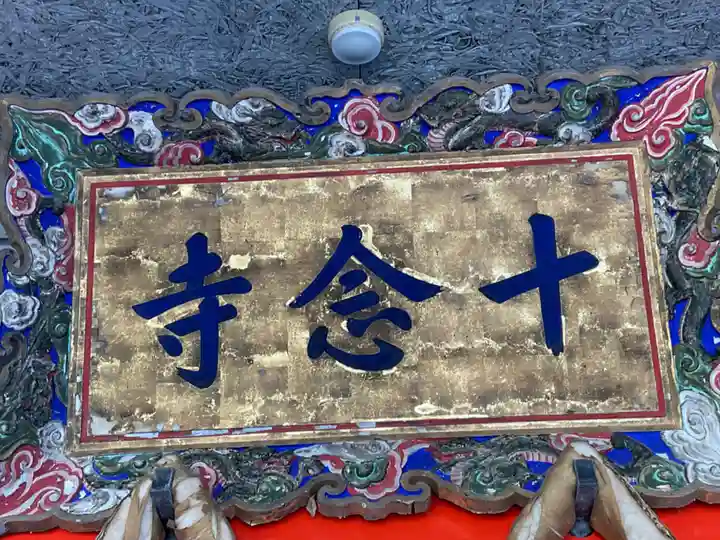 十念寺